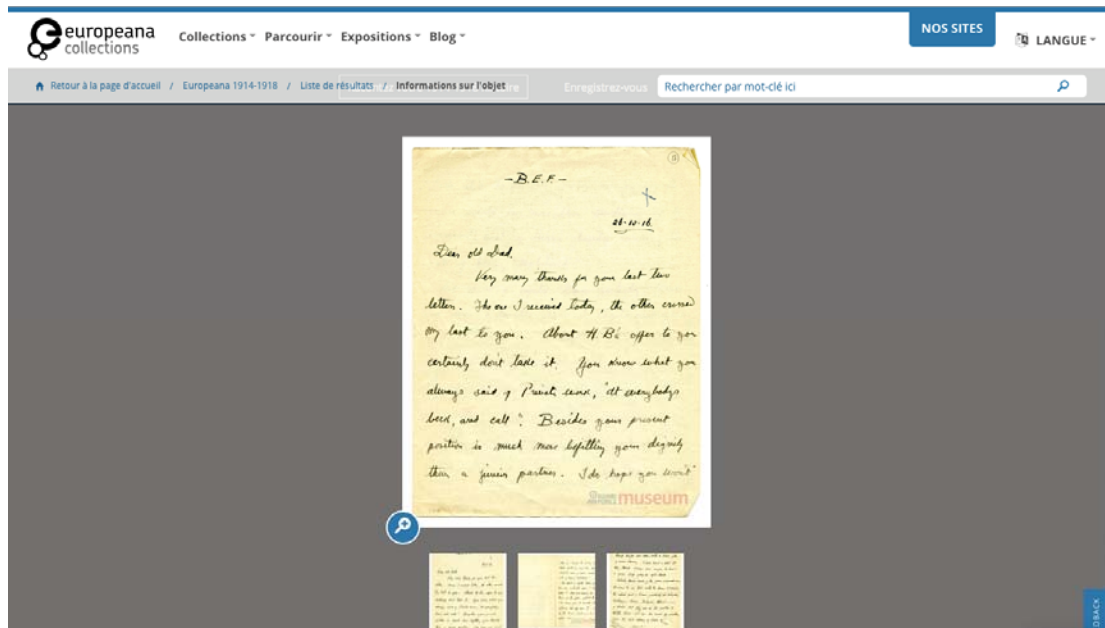 europeana
collections
Collections Parcourir Expositions Blog
NOS SITES
LANGUE
Retour à la page d'accueil / Europeana 1914-1918 / Liste de résultats / Informations sur l'objet
Enregistrez-vous
Rechercher par mot-clé ici
- B.E.F. -
Dear old Dad,
Very many thanks for your last two
letters. The one I received today, the other crossed
my last to you. About H.B's offer to you
certainly don't take it. You know what you
always said of Private work, "at everybodys
beck, and call". Besides your present
position is much more befitting your dignity
than a junior partner. I do hope you won't
museum